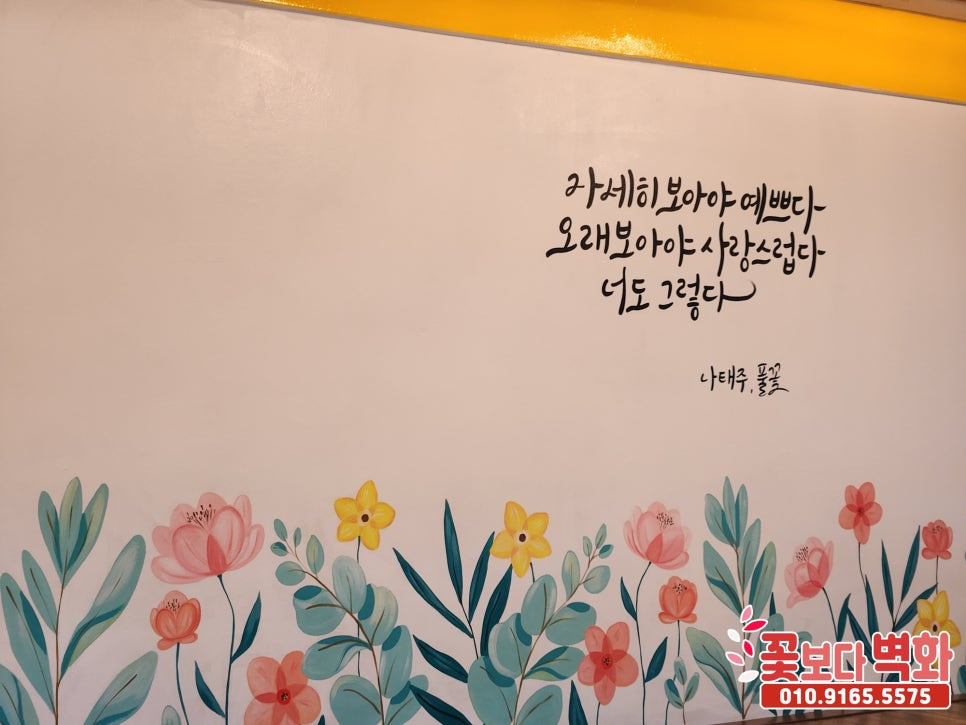 자세히 보아야 예쁘다
오래 보아야 사랑스럽다
너도 그렇다
나태주, 풀꽃
꽃보다 벽화
010.9165.5575